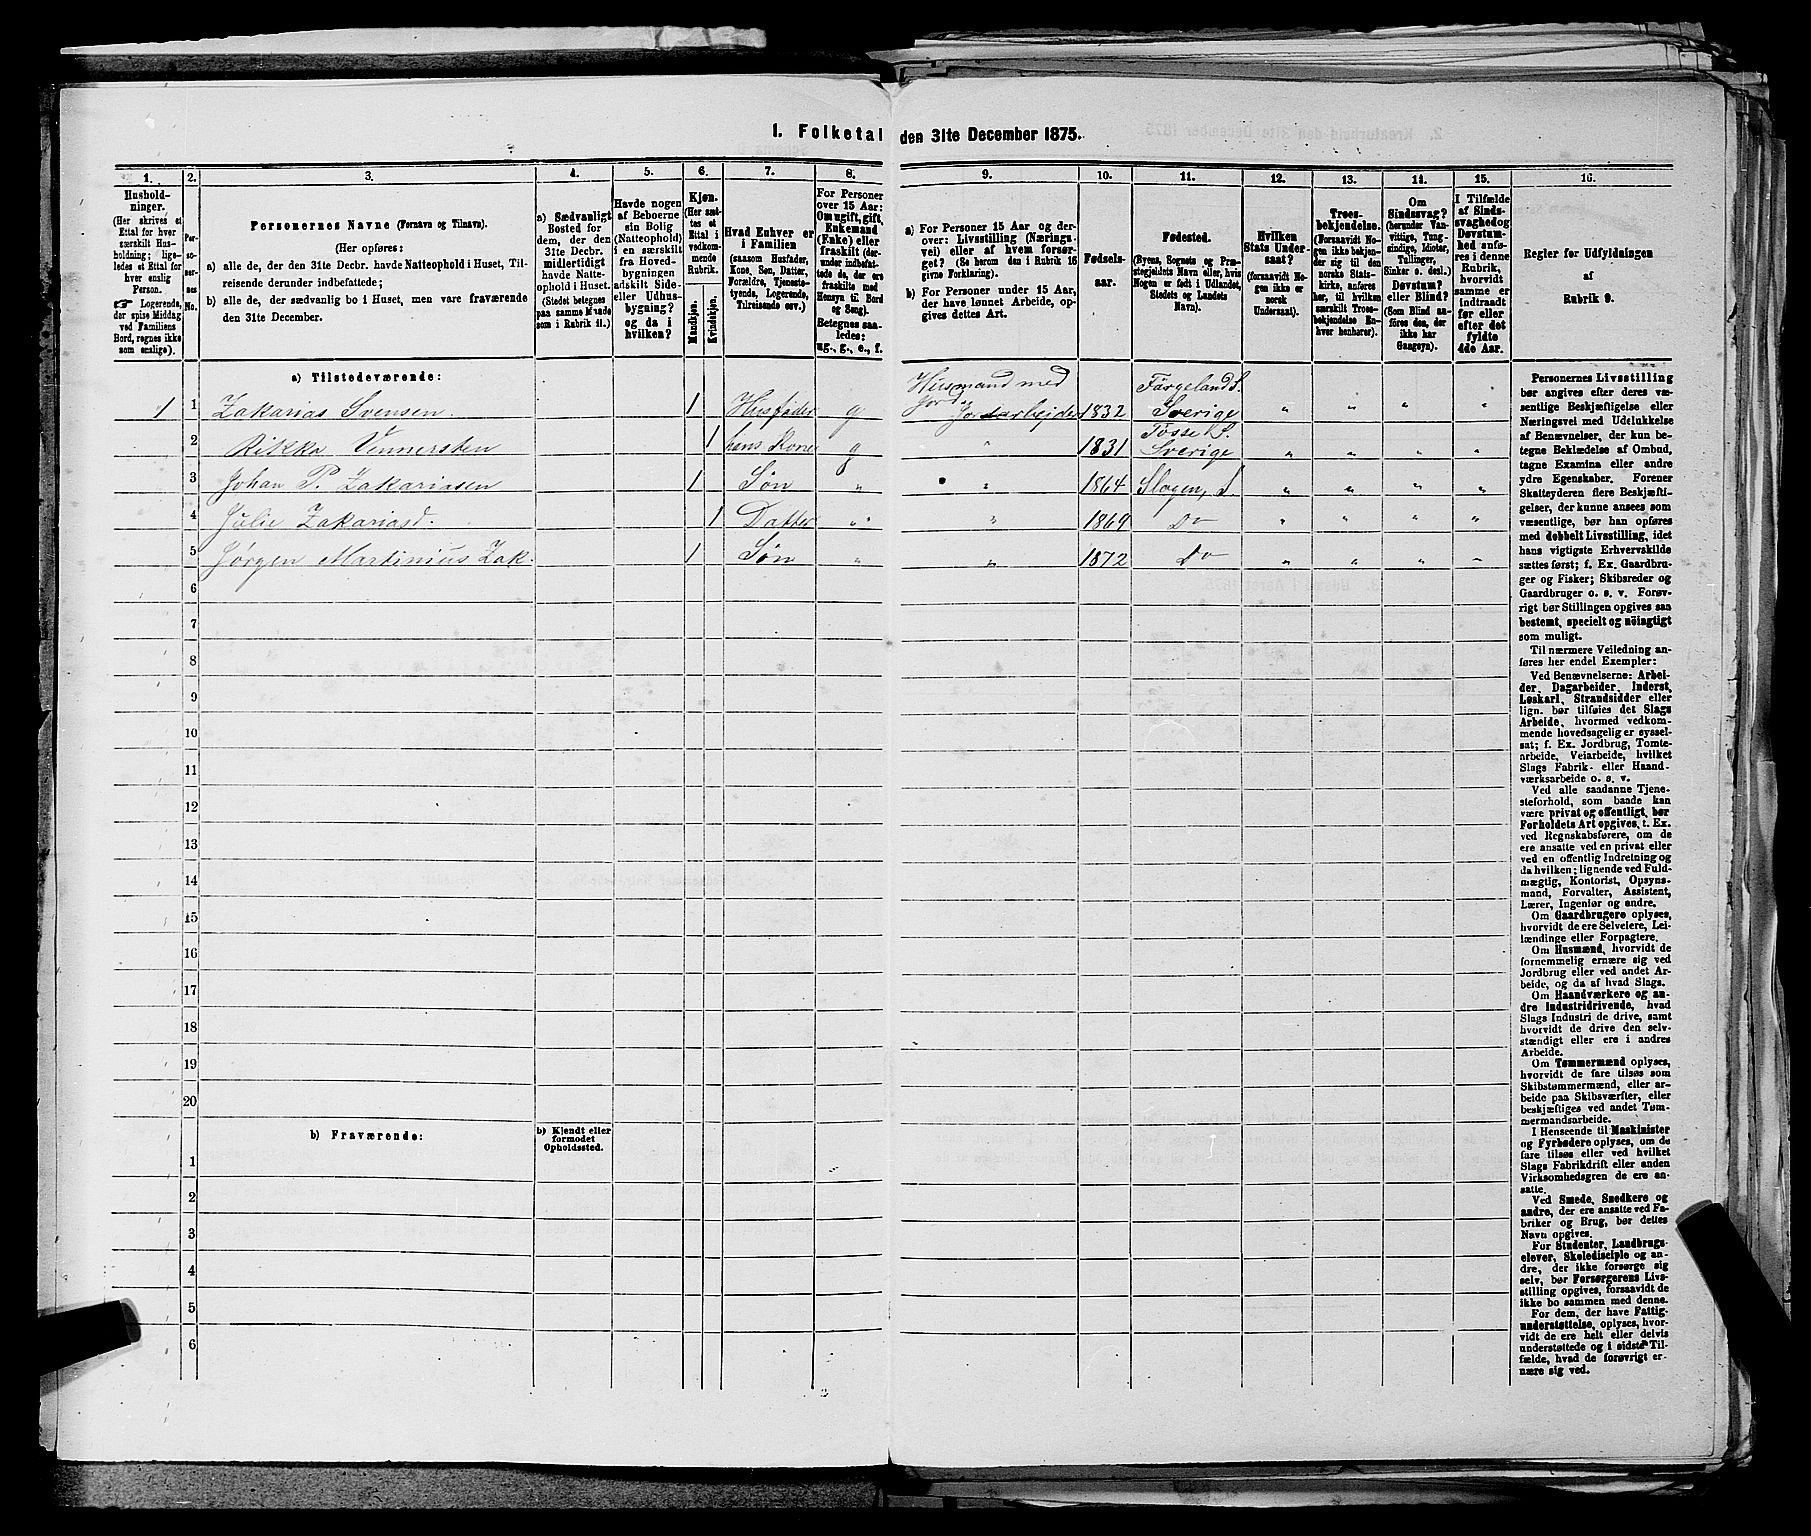 1. Folketal den 31te December 1875.
1.
2.
3.
4.
5.
6.
7.
8.
9.
10.
11.
12.
13.
14.
15.
16.
Husholdninger.
(Her skrives et
Ettal for hver
særskilt Husholdning; ligeledes et Ettal for
hver enslig
Person.
☞ Logerende,
der spise Middag
ved Familiens
Bord, regnes ikke
som enslige).
Personernes No.
Personernes Navne (Fornavn og Tilnavn).
(Her opføres:
a) alle de, der den 31te Decbr. havde Natteophold i Huset, Tilreisende derunder indbefattede;
b) alle de, der sædvanlig bo i Huset, men vare fraværende
den 31te December.
a) Sædvanligt
Bosted for
dem, der den
31te Decbr.
midlertidigt
havde Natteophold i Huset.
(Stedet betegnes
paa samme Maade
som i Rubrik 11.)
Havde nogen
af Beboerne
sin Bolig
(Natteophold)
i en særskilt
fra Hovedbygningen
adskilt Side-
eller Udhusbygning?
og da i
hvilken?
Kjøn.
(Her sættes et
Ettal i
vedkommende
Rubrik.
Mandkjøn.
Kvindekjøn.
Hvad Enhver er
i Familien
(saasom Husfader,
Kone, Søn, Datter,
Forældre, Tjenestetyende, Logerende,
Tilreisende osv.)
For Personer
over 15 Aar:
Om ugift, gift,
Enkemand
(Enke) eller
fraskilt (derunder indbefattede de, der ere
fraskilte med
Hensyn til Bord
og Seng).
Betegnes saaledes:
ug., g., e., f.
a) For Personer 15 Aar og derover: Livsstilling (Næringsvei) eller af hvem forsørget? (Se herom den i Rubrik 16
givne Forklaring).
b) For Personer under 15 Aar,
der have lønnet Arbeide, opgives dettes Art.
Fødselsaar.
Fødested.
(Byens, Sognets og Præstegjeldets Navn eller, hvis
Nogen er født i Udlandet,
Stedets og Landets
Navn).
Hvilken
Stats Undersaat?
(forsaavidt Nogen ikke er
norsk
Undersaat).
Troesbekjendelse.
(Forsaavidt Nogen ikke bekjender sig til den
norske Statskirke, anføres
her, til hvilken
særskilt Troesbekjendelse Enhver henhører).
Om
Sindssvag?
(herunder Vanvittige, Tungsindige, Idioter,
Tullinger,
Sinker o. desl.)
Døvstum?
eller Blind?
(Som Blind anføres den, der
ikke har
Gangsyn).
I Tilfælde
af Sindssvaghed og
Døvstumhed anføres i denne
Rubrik,
hvorvidt
samme er
indtraadt
før eller
efter det
fyldte
4de Aar.
Regler for Udfyldningen
af
Rubrik 9.
a) Tilstedeværende:
1 1 Zakarias Svensen 1 Husfader g Husmand med Jord 1832 Färgeland S. Sverige " " " "
2 Rikka Vennersten 1 hans Kone g " 1831 Tösse S. Sverige " " " "
3 Johan P. Zakariasen 1 Søn " " 1864 Slagen, S. " " " "
4 Julie Zakariasd. 1 Datter " " 1869 Do " " " "
5 Jørgen Martinius Zak. 1 Søn " " 1872 Do " " " "
6
7
8
9
10
11
12
13
14
15
16
17
18
19
20
b) Fraværende:
b) Kjendt eller
formodet
Opholdssted.
1
2
3
4
5
6
Personernes Livsstilling
bør angives efter deres væsentlige Beskjæftigelse eller
Næringsvei med Udelukkelse
af Benævnelser, der kun betegne Beklædelse af Ombud,
tagne Examina eller andre
ydre Egenskaber. Forener
Skatteyderen flere Beskjæftigelser, der kunne ansees som
væsentlige, bør han opføres
med dobbelt Livsstilling, idet
hans vigtigste Erhvervskilde
sættes først; f. Ex. Gaardbruger og Fisker; Skibsreder og
Gaardbruger o. s. v. Forøvrigt bør Stillingen opgives saa
bestemt, specielt og nöiagtigt
som muligt.
Til nærmere Veiledning anføres her endel Exempler:
Ved Benævnelserne: Arbeider, Dagarbeider, Inderst,
Løskarl, Strandsidder eller
lign. bør tilføies det Slags
Arbeide, hvormed vedkommende hovedsagelig er sysselsat; f. Ex. Jordbrug, Tomtearbeide, Veiarbeide, hvilket
Slags Fabrik- eller Haandværksarbeide o. s. v.
Ved alle saadanne Tjenesteforhold, som baade kan
være privat og offentligt, bør
Forholdets Art opgives, t. Ex.
ved Regnskabsførere, om de
ere ansatte ved en privat eller
ved en offentlig Indretning og
da hvilken; lignende ved Fuldmægtig, Kontorist, Opsynsmand, Forvalter, Assistent,
Lærer, Ingeniør og andre.
Om Gaardbrugere oplyses,
hvorvidt de ere Selveiere, Leilændinge eller Forpagtere.
Om Husmænd, hvorvidt de
fornemmelig ernære sig ved
Jordbrug eller ved andet Arbeide, og da af hvad Slags.
Om Haandværkere og andre Industridrivende, hvad
Slags Industri de drive, samt
hvorvidt de drive den selvstændigt eller ere i andres
Arbeide.
Om Tømmermænd oplyses,
hvorvidt de fare tilsøs som
Skibstømmermænd, eller arbeide paa Skibsværfter, eller
beskjæftiges ved andet Tømmermandsarbeide.
I Henseende til Maskinister
og Fyrbødere oplyses, om de
fare tilsøs eller ved hvilket
Slags Fabrikdrift eller anden
Virksomhedsgren de ere ansatte.
Ved Smede, Snedkere og
andre, der ere ansatte ved Fabriker og Brug, bør dettes
Navn opgives.
For Studenter, Landbrugselever, Skoledisciple og andre, der ikke forsørge sig
selv, bør Forsørgerens Livsstilling opgives, forsaavidt de
ikke bo sammen med denne.
For dem, der have Fattigunderstøttelse, oplyses, hvorvidt de ere helt eller delvis
understøttede og i sidste Tilfælde, hvad de forøvrigt ernære sig ved.